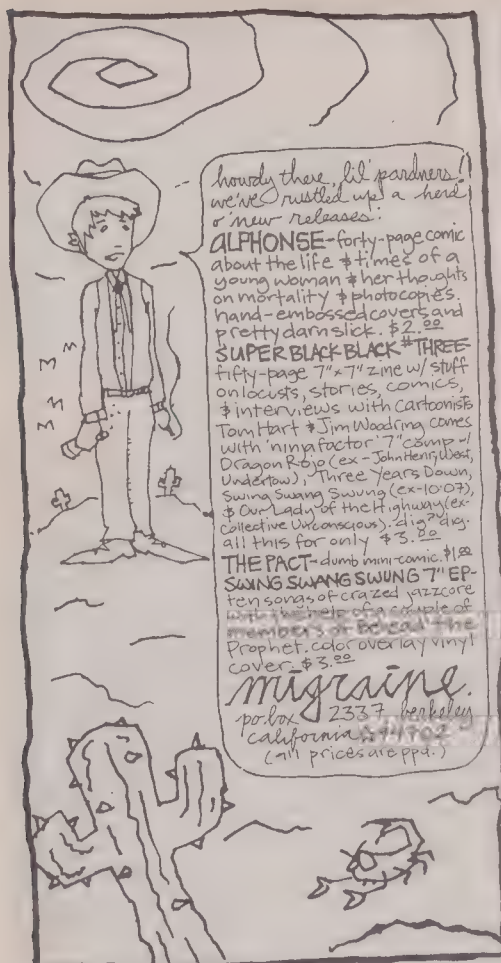 howdy there, lil' pardners!
we've rustled up a herd
o' new releases:
ALPHONSE-forty-page comic
about the life & times of a
young woman & her thoughts
on mortality & photocopies.
hand-embossed covers and
pretty darn slick. $2.00
SUPER BLACK BLACK #THREE-
fifty-page 7"x7" zine w/ stuff
on locusts, stories, comics,
& interviews with cartoonists
Tom Hart & Jim Woodring comes
with 'ningfactor' 7" comp w/
Dragon Rojo (ex-John Henry West,
Undertow), Three Years Down,
Swing Swang Swung (ex-10:07),
& Our Lady of the Highway (ex-
collective Unconscious). dig? dig.
all this for only $3.00
THE PACT-dumb mini-comic. $1.00
SWING SWANG SWUNG 7" EP-
ten songs of crazed jazzcore
with the help of a couple of
members of Behead the
Prophet. color overlay vinyl
cover. $3.00
migraine.
po.box 2337 berkeley
california 94702
(all prices are ppd.)